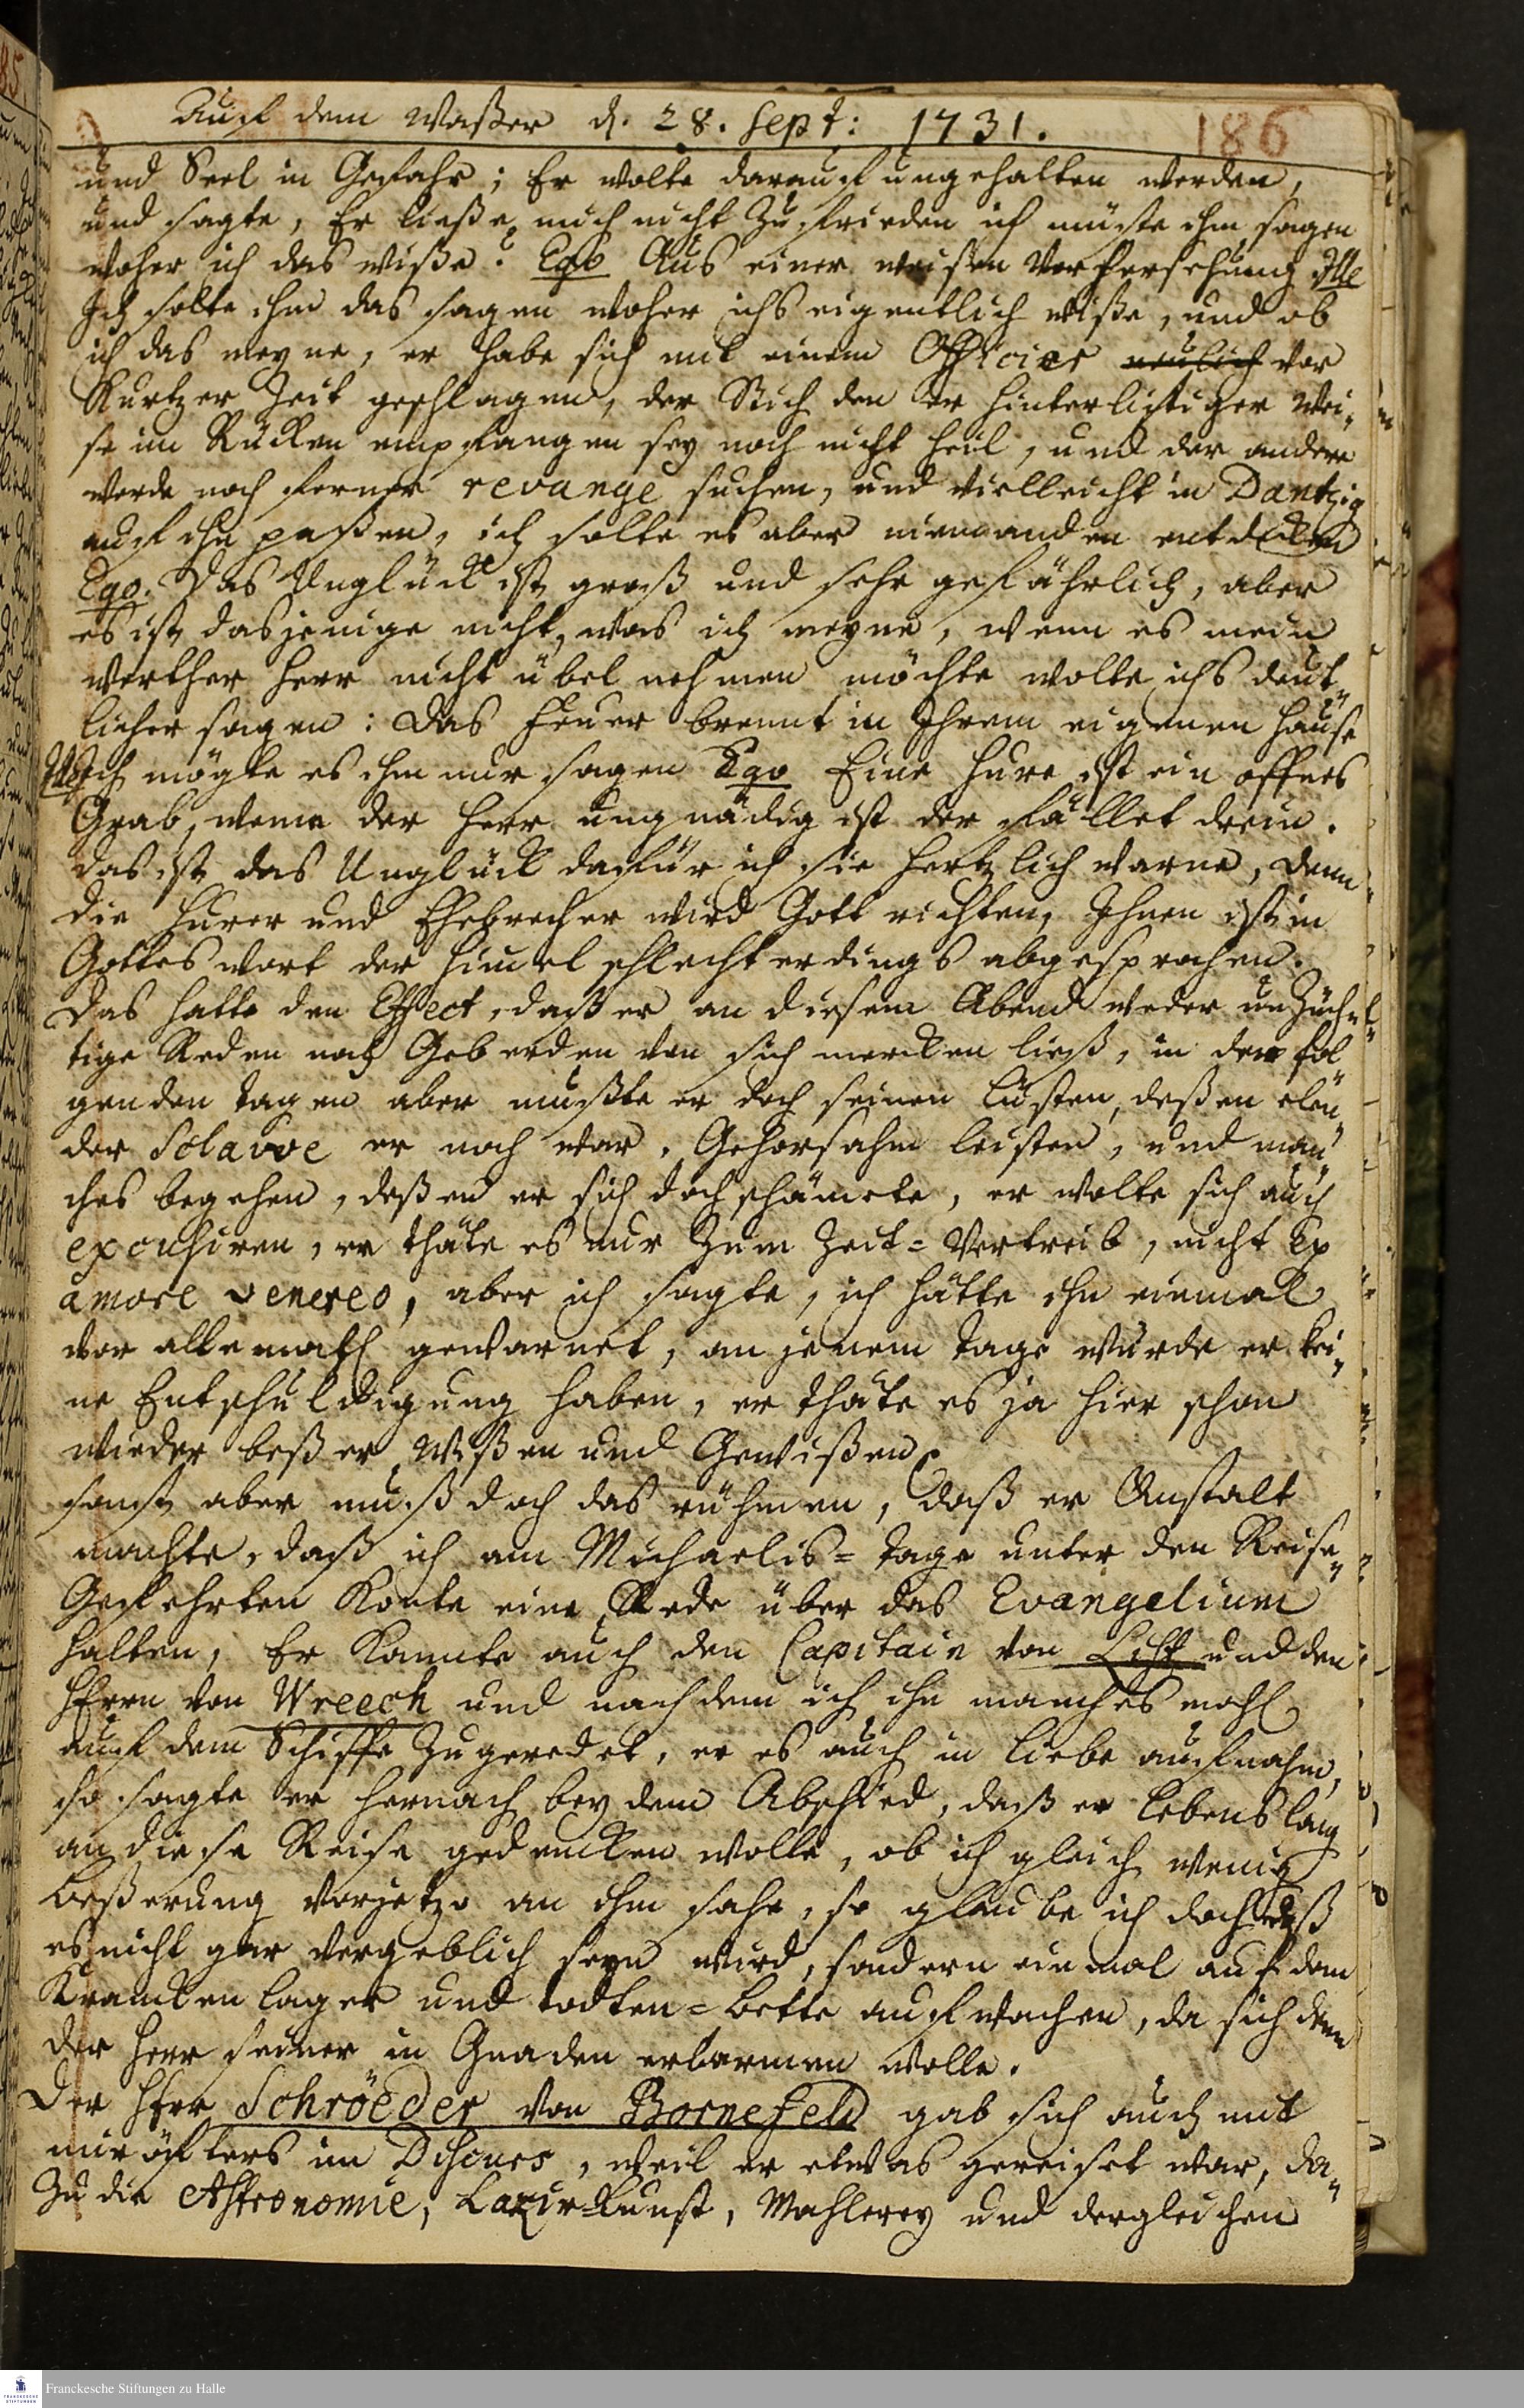 Auf dem Waßer d. 28. Sept: 1731.
186
und Seel in Gefahr; Er wolte darauf ungehalten werden,
und sagte, Er ließe mich nicht zufrieden ich müste ihm sagen
woher ich das wiße? Ego Aus einer weisen Vorhersehung Ille
Ich solte ihm das sagen woher ichs eigentlich wiße, und ob
ich das meyne, er habe sich mit einem Officier neulich vor
Kurtzer Zeit geschlagen, der Stich den er hinterlistiger Wei-
se im Rücken empfangen sey noch nicht heil, und der andere
werde noch ferner revange suchen, und vielleicht in Dantzig
auf ihn paßen, ich solte es aber niemanden entdecken
Ego. Das Unglück ist groß und sehr gefährlich, aber
es ist dasjenige nicht, was ich meyne, wenn es mein
werther Herr nicht übel nehmen möchte wolte ichs deut-
licher sagen: Das Feuer brennt in Ihrem eigenen Hause
Ille Ich mögte es ihm nur sagen Ego Eine Hure ist ein offnes
Grab, wem der Herr ungnädig ist der fället drein.
das ist das Unglück dafür ich sie hertzlich warne, denn
die Hurer und Ehebrecher wird Gott richten, Ihnen ist in
Gottes wort der Himel schlechterdings abgesprochen.
Das hatte den Effect, daß er an diesem Abend weder unzüch-
tige Reden noch Geberden von sich mercken ließ, in den fol-
genden tagen aber mußte er doch seinen Lüsten, deßen elen-
der Sclavve er noch war, Gehorsahm leisten, und man-
ches begehen, deßen er sich doch schämete, er wolte sich auch
excusiren, er thäte es nur zum Zeit=Vertreib, nicht ex
amore venereo, aber ich sagte, ich hätte ihn einmal
vor allemahl gewarnet, an jenem tage würde er kei-
ne Entschuldigung haben, er thäte es ja hier schon
wieder beßer Wißen und Gewißen.
sonst aber muß doch das rühmen, daß er Anstalt
machte, daß ich am Michaelis=tage unter den Reise-
Gefehrten Konte eine Rede über das Evangelium
halten, Er Kannte auch den Capitain von Lichf und den
HErrn von Wreech und nachdem ich ihn manches mahl
auf dem Schiffe zugeredet, er es auch in Liebe aufnahm,
so sagte er hernach bey dem Abschied, daß er lebenslang
an diese Reise gedencken wolle, ob ich gleich wenig
beßerung vorjetzo an ihm sahe, so glaube ich doch daß
es nicht gar vergeblich seyn wird, sondern einmal auf dem
Krancken lager und todten=bette aufwachen, da sich denn
der Herr seiner in Gnaden erbarmen wolle.
Der HErr Schröeder von Bornefeld gab sich auch mit
mir öfters im Discurs, weil er etwas gereiset war, da-
zu die Astronomie, Laxir-Kunst, Mahlerey und dergleichen
Franckesche Stiftungen zu Halle